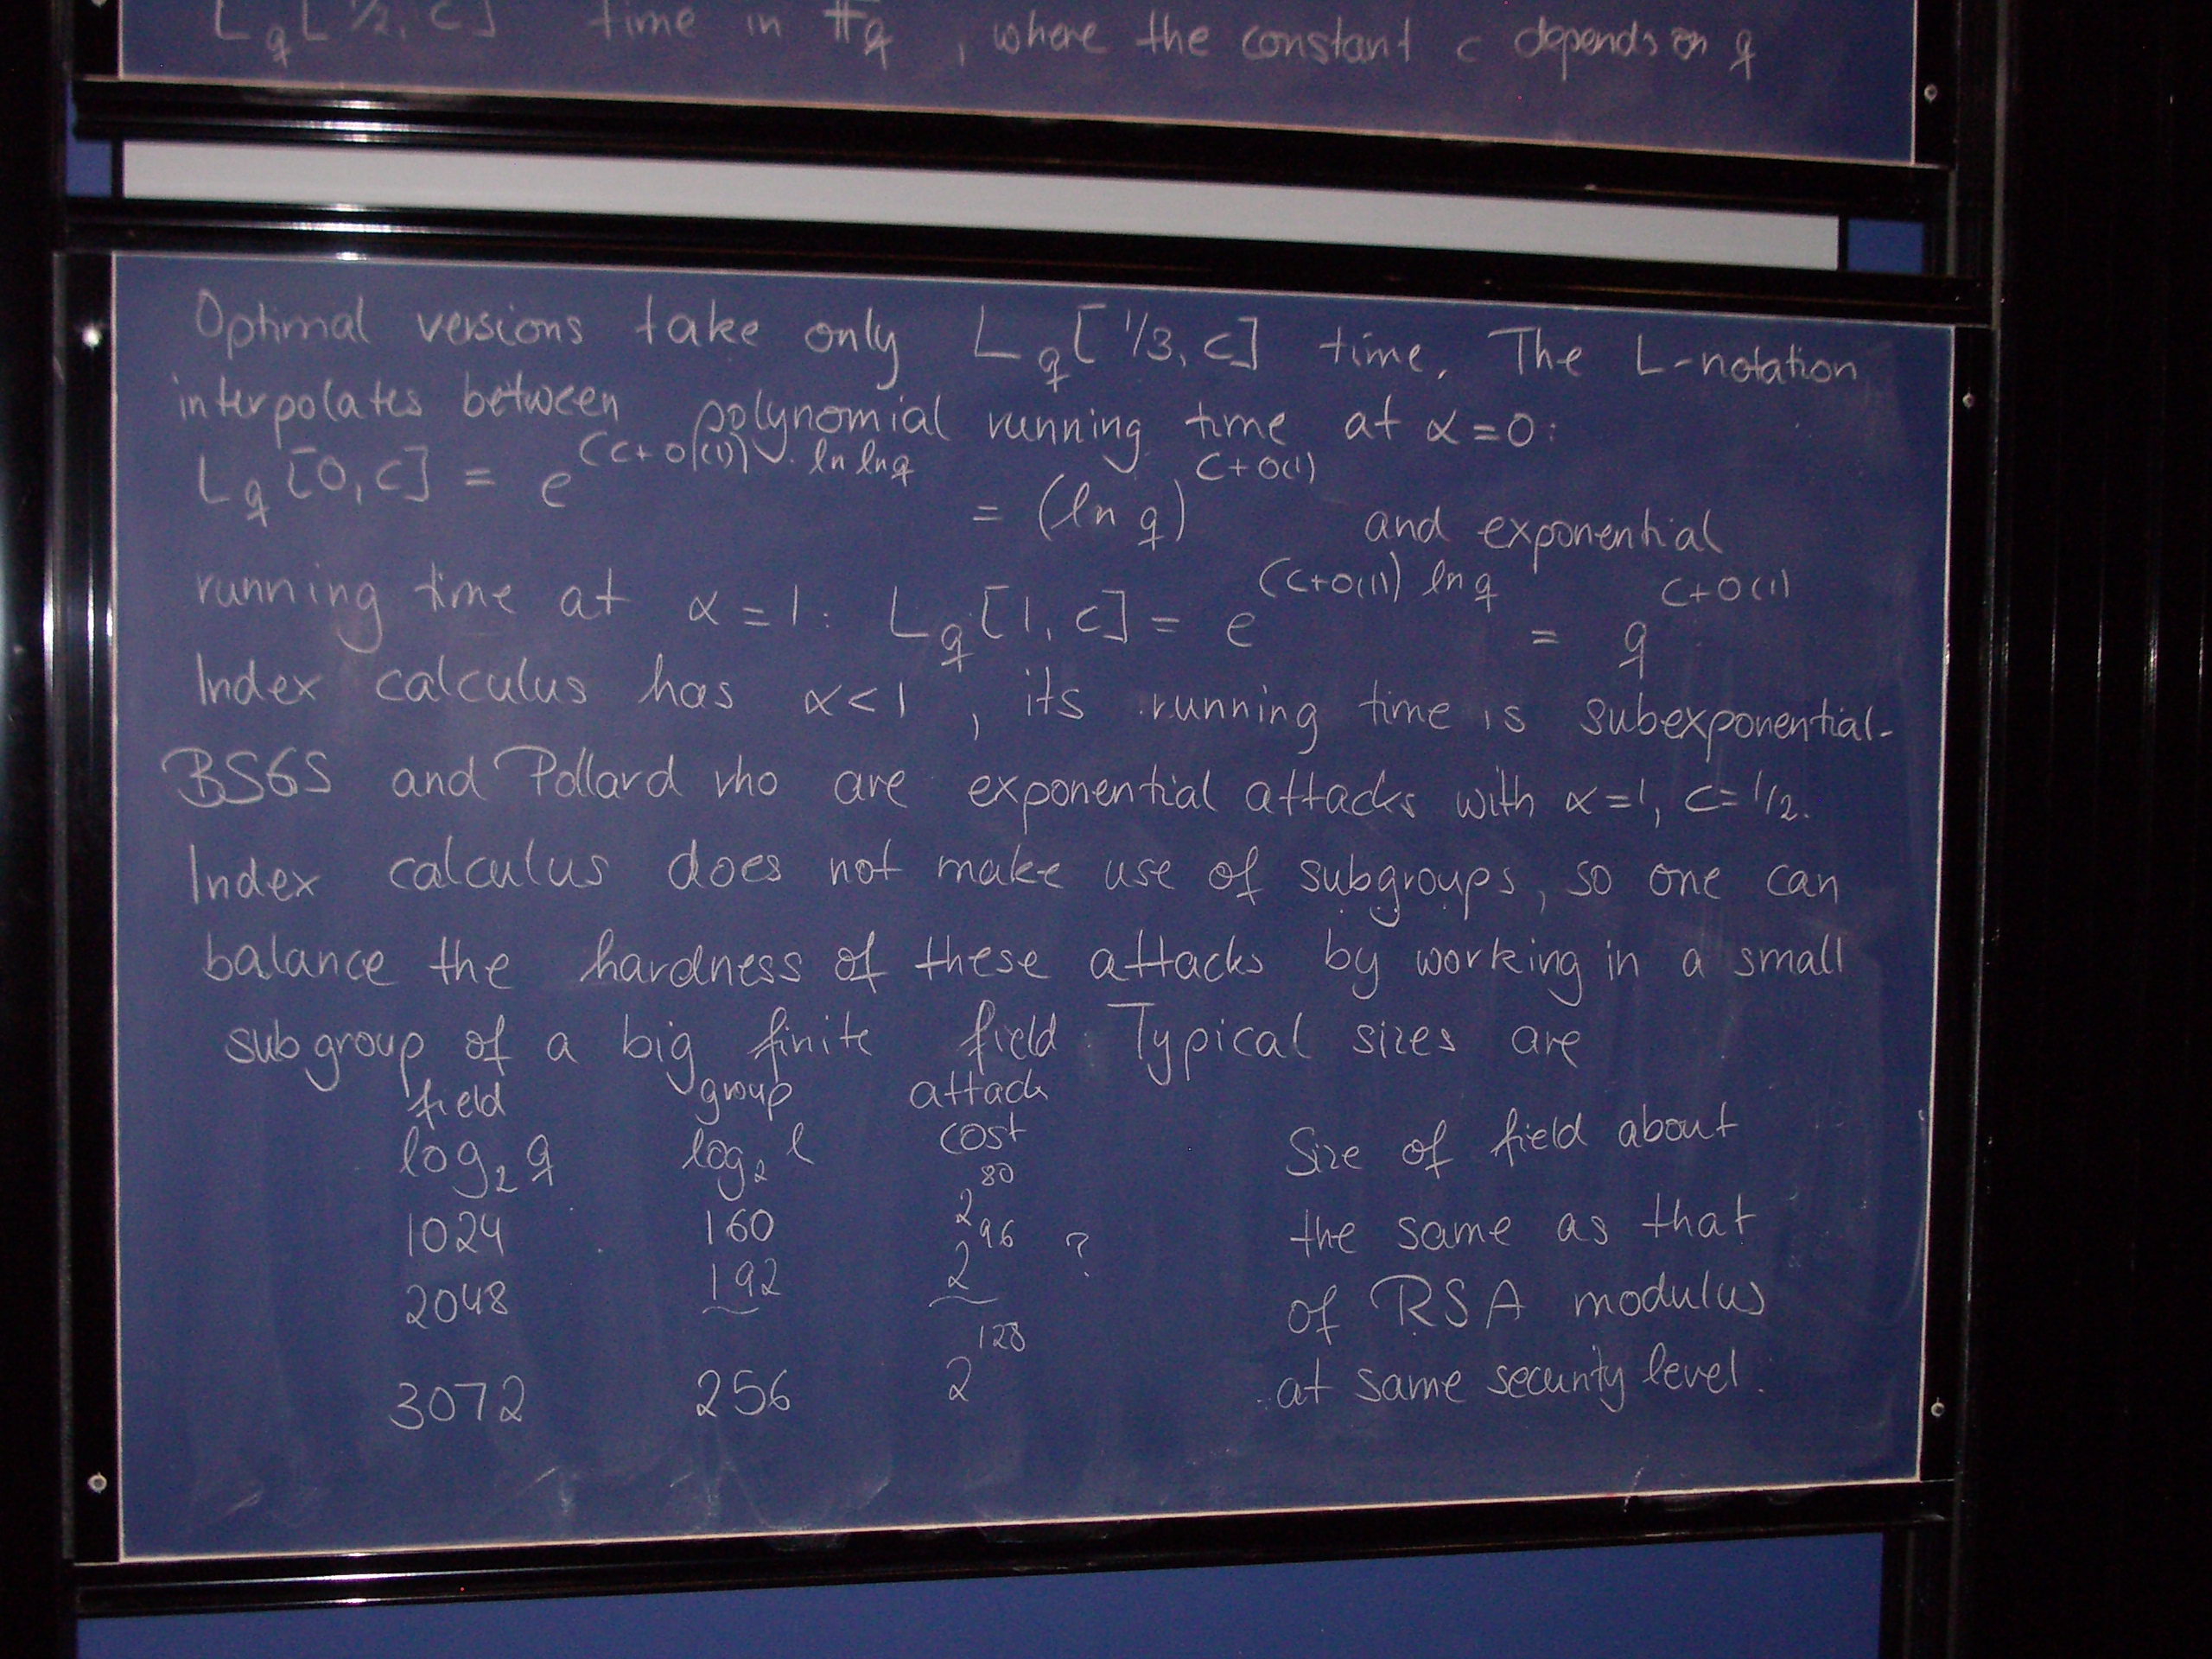 L_q[1/2, c] time in F_q, where the constant c depends on q
Optimal versions take only L_q[1/3, c] time. The L-notation
interpolates between polynomial running time at α=0:
L_q[0,c] = e^{(c+o(1)) · ln ln q} = (ln q)^{c+o(1)} and exponential
running time at α=1: L_q[1,c] = e^{(c+o(1)) ln q} = q^{c+o(1)}
Index calculus has α<1, its running time is subexponential.
BSGS and Pollard rho are exponential attacks with α=1, c=1/2.
Index calculus does not make use of subgroups, so one can
balance the hardness of these attacks by working in a small
subgroup of a big finite field. Typical sizes are
field group attack
log₂ q log₂ l cost Size of field about
1024 160 2^80 the same as that
2048 192 2^96 ? of RSA modulus
3072 256 2^128 at same security level.